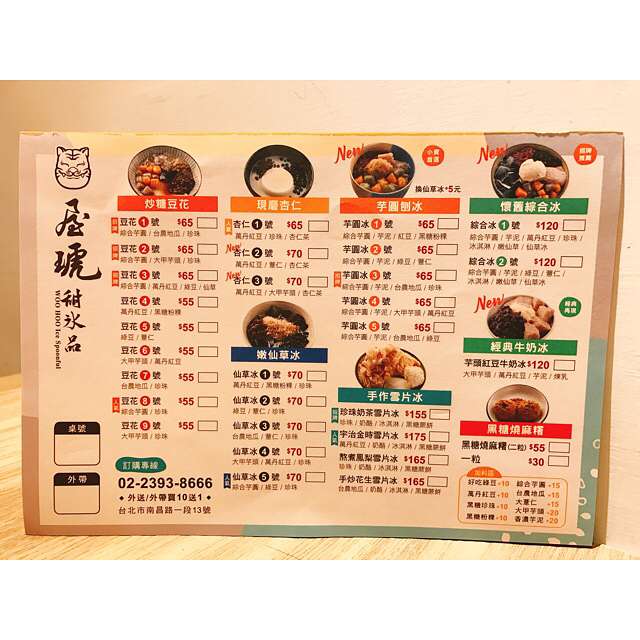 屋琥
甜冰品
WOO HOO Ice Spoonful
桌號
外帶
訂購專線
02-2393-8666
外送/外帶買10送1
台北市南昌路一段13號
炒糖豆花
豆花 1 號 $65
綜合芋圓 / 台農地瓜 / 珍珠
豆花 2 號 $65
綜合芋圓 / 大甲芋頭 / 珍珠
豆花 3 號 $65
綜合芋圓 / 萬丹紅豆 / 綠豆 / 仙草
豆花 4 號 $55
萬丹紅豆 / 黑糖粉粿
豆花 5 號 $55
綠豆 / 薏仁
豆花 6 號 $55
大甲芋頭 / 萬丹紅豆
豆花 7 號 $55
台農地瓜 / 珍珠
豆花 8 號 $55
綜合芋圓 / 珍珠
豆花 9 號 $55
大甲芋頭 / 珍珠
現磨杏仁
杏仁 1 號 $65
萬丹紅豆 / 珍珠 / 杏仁茶
New
杏仁 2 號 $70
萬丹紅豆 / 薏仁 / 杏仁茶
New
杏仁 3 號 $70
萬丹紅豆 / 大甲芋頭 / 杏仁茶
嫩仙草冰
仙草冰 1 號 $70
萬丹紅豆 / 黑糖粉粿 / 珍珠
仙草冰 2 號 $70
綠豆 / 薏仁 / 珍珠
仙草冰 3 號 $70
台農地瓜 / 薏仁 / 珍珠
仙草冰 4 號 $70
大甲芋頭 / 萬丹紅豆 / 珍珠
仙草冰 5 號 $70
綜合芋圓 / 綠豆 / 珍珠
New
小資首選
換仙草冰+5元
芋圓刨冰
芋圓冰 1 號 $65
綜合芋圓 / 芋泥 / 紅豆 / 黑糖粉粿
芋圓冰 2 號 $65
綜合芋圓 / 芋泥 / 綠豆 / 薏仁
芋圓冰 3 號 $65
綜合芋圓 / 芋泥 / 台農地瓜 / 珍珠
芋圓冰 4 號 $65
大甲芋頭 / 萬丹紅豆 / 芋泥 / 珍珠
芋圓冰 5 號 $65
綜合芋圓 / 芋泥 / 台農地瓜 / 綠豆
手作雪片冰
珍珠奶茶雪片冰 $155
珍珠 / 奶酪 / 冰淇淋 / 黑糖蕨餅
宇治金時雪片冰 $175
萬丹紅豆 / 奶酪 / 冰淇淋 / 黑糖蕨餅
熬煮鳳梨雪片冰 $165
珍珠 / 奶酪 / 冰淇淋 / 黑糖蕨餅
手炒花生雪片冰 $165
台農地瓜 / 奶酪 / 冰淇淋 / 黑糖蕨餅
New
招牌推薦
懷舊綜合冰
綜合冰 1 號 $120
綜合芋圓 / 芋泥 / 紅豆 / 珍珠 /
冰淇淋 / 嫩仙草 / 仙草冰
綜合冰 2 號 $120
綜合芋圓 / 芋泥 / 綠豆 / 薏仁 /
冰淇淋 / 嫩仙草 / 仙草冰
New
經典再現
經典牛奶冰
芋頭紅豆牛奶冰 $120
大甲芋頭 / 萬丹紅豆 / 芋泥 / 煉乳
黑糖燒麻糬
黑糖燒麻糬(二粒) $55
一粒 $30
加料區
好吃綠豆 +10 綜合芋圓 +15
萬丹紅豆 +10 台農地瓜 +15
黑糖珍珠 +10 大薏仁 +15
黑糖粉粿 +10 大甲芋頭 +20
香濃芋泥 +20